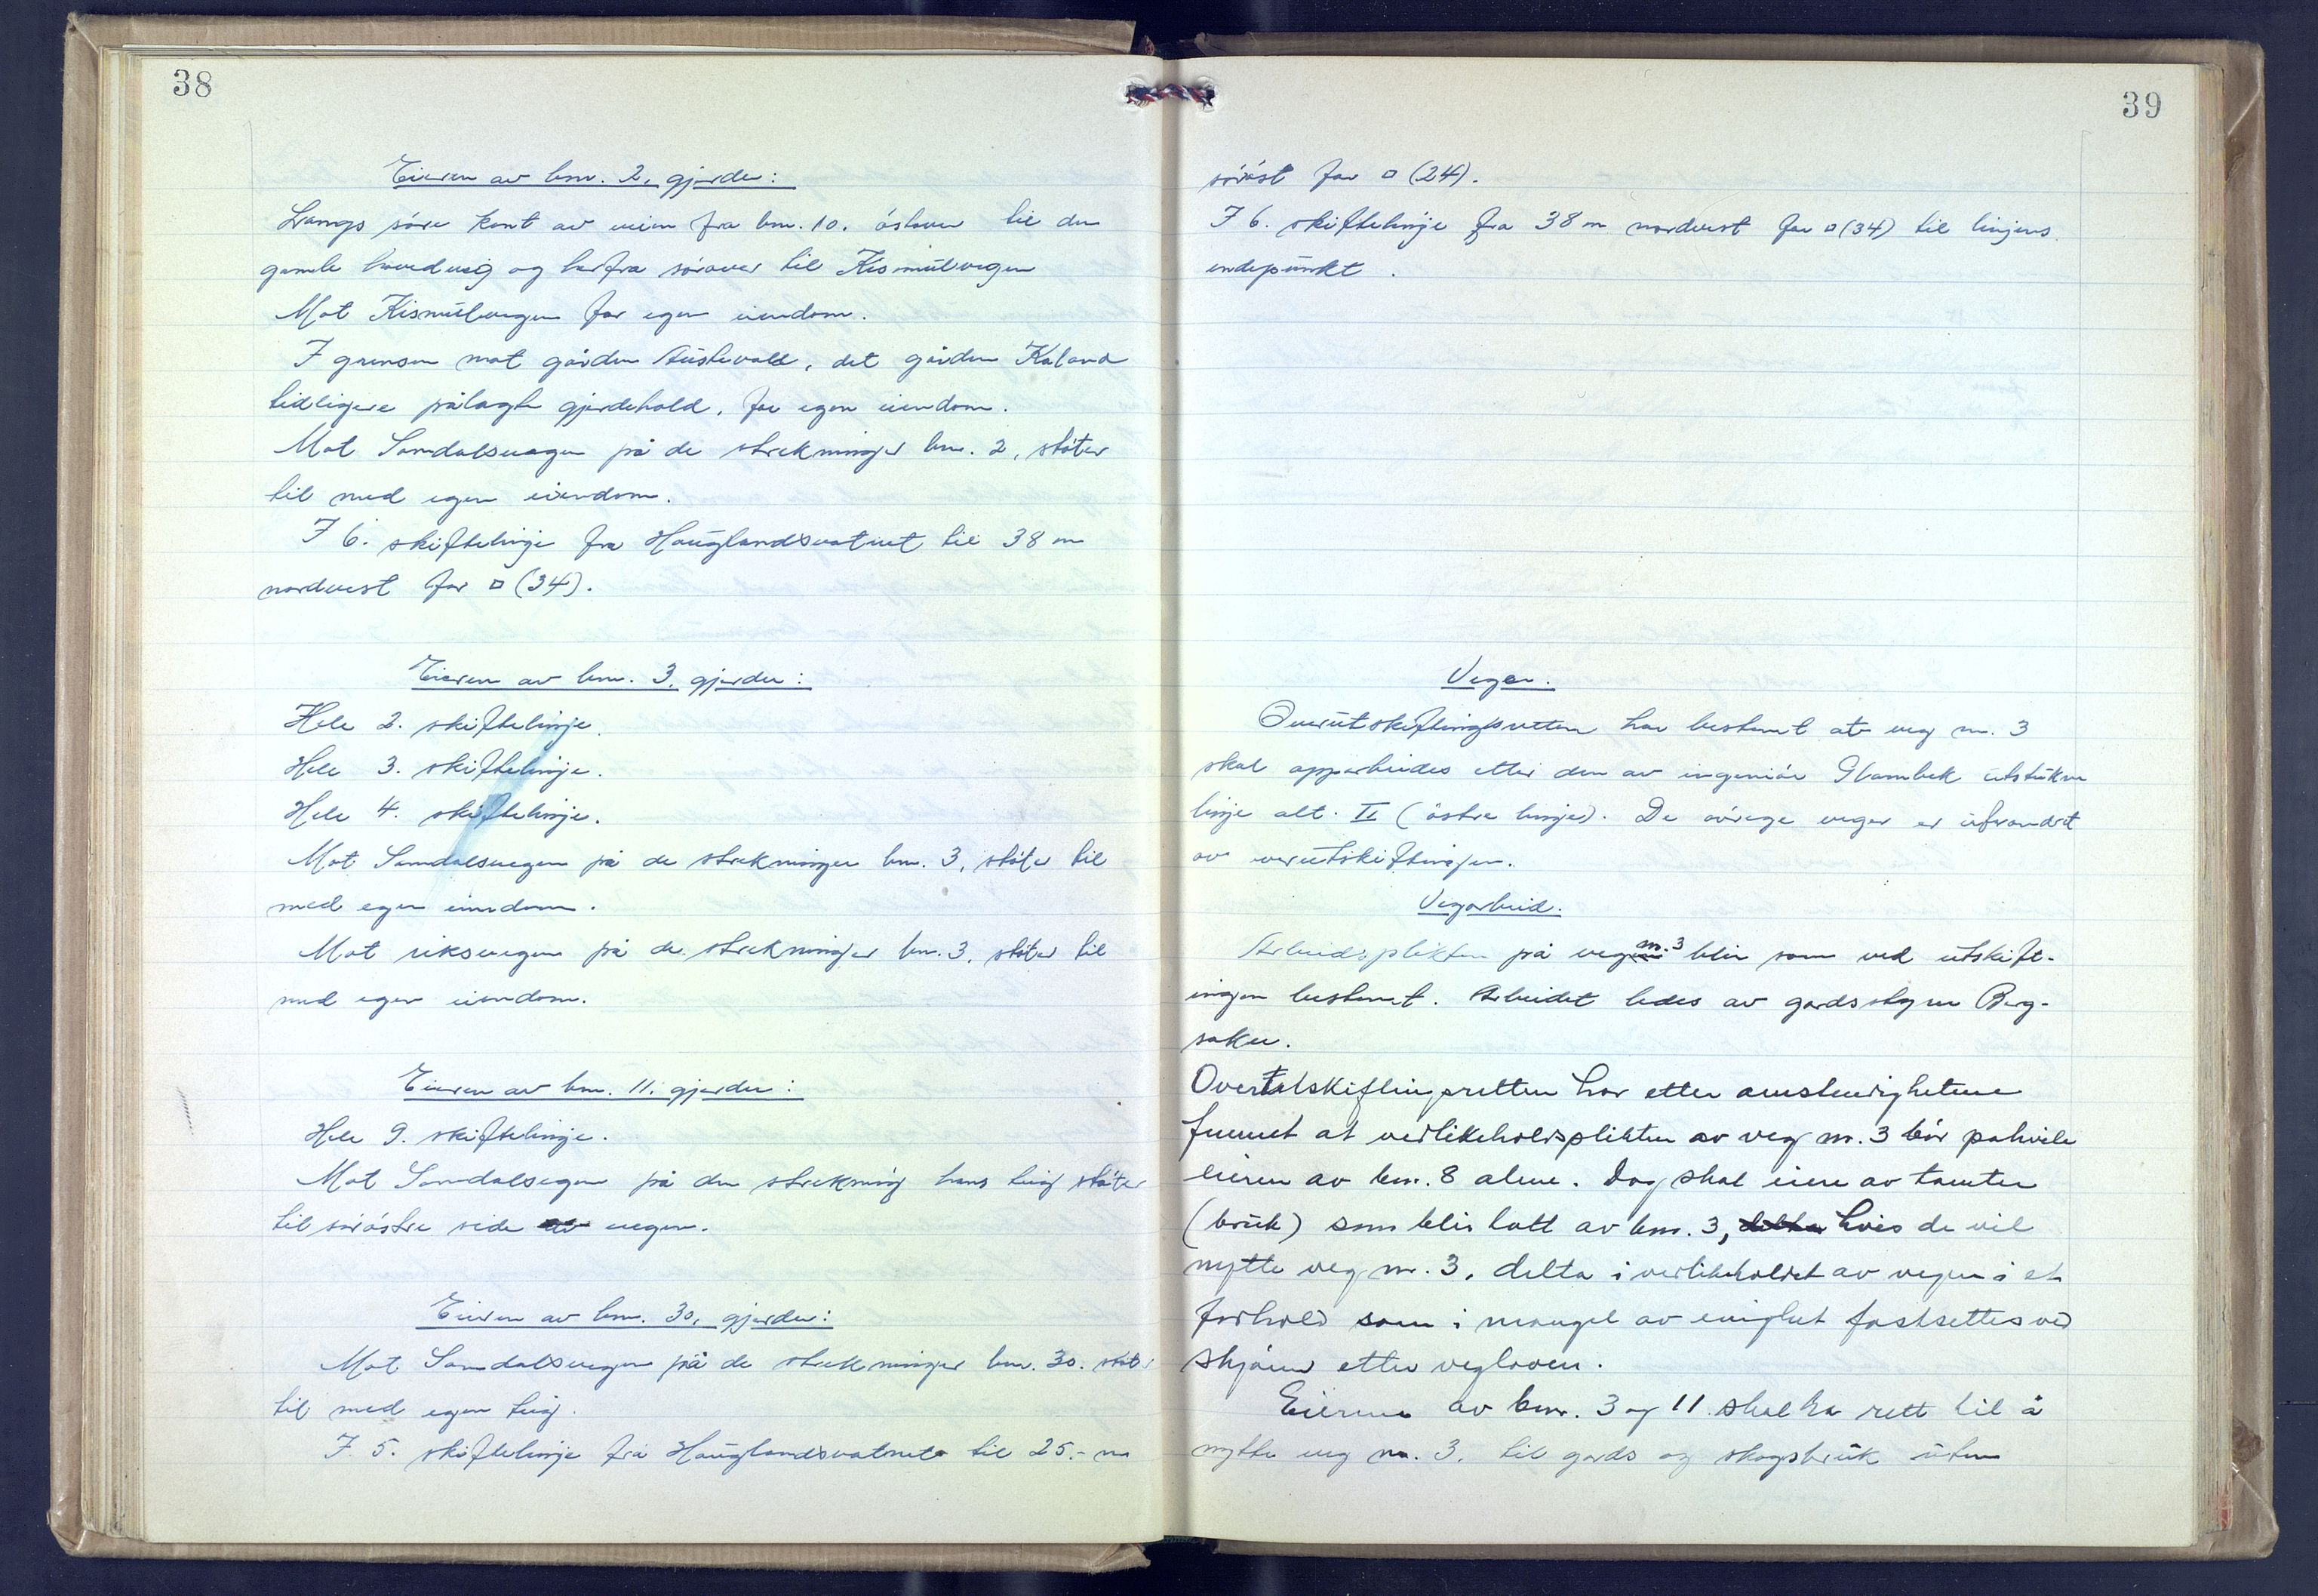 38
Eieren av bnr. 2, gjerder:
Langs søre kant av veien fra bnr. 10. østover til den
gamle hovedveg og herfra sørover til Kismulvegen
Mot Kismulvegen for egen eiendom.
I grensen mot gården Austevoll, det gården Kaland
tidligere pålagte gjerdehold, for egen eiendom.
Mot Samdalsvegen på de strekninger bnr. 2, støter
til med egen eiendom.
I 6. skiftelinje fra Hauglandsvatnet til 38 m
nordvest for □ (34).
Eieren av bnr. 3, gjerder:
Hele 2. skiftelinje.
Hele 3. skiftelinje.
Hele 4. skiftelinje.
Mot Samdalsvegen på de strekninger bnr. 3, støter til
med egen eiendom.
Mot riksvegen på de strekninger bnr. 3, støter til
med egen eiendom.
Eieren av bnr. 11. gjerder:
Hele 9. skiftelinje.
Mot Samdalsvegen på den strekning hans teig støter
til sørøstre side av vegen.
Eieren av bnr. 30, gjerder:
Mot Samdalsvegen på de strekninger bnr. 30. støter
til med egen teig.
I 5. skiftelinje fra Hauglandsvatnet til 25.- m
39
sørøst for □ (24).
I 6. skiftelinje fra 38 m nordvest for □ (34) til linjens
endepunkt.
Veger.
Overutskiftingsretten har bestemt at veg nr. 3
skal opparbeides etter den av ingeniør Glambek utstukne
linje alt. II (østre linje). De øvrige veger er uforandret
av overutskiftingen.
Vegarbeid.
Arbeidsplikten på veg nr. 3 blir som ved utskift-
ingen bestemt. Arbeidet ledes av gardsstyrer Berg-
saker.
Overutskiftingsretten har etter omstendighetene
funnet at vedlikeholdsplikten av veg nr. 3 bør påhvile
eieren av bnr. 8 alene. Dog skal eiere av tomter
(bruk) som blir tatt av bnr. 3, delta hvis de vil
nytte veg nr. 3, delta i vedlikeholdet av vegen i et
forhold som i mangel av enighet fastsettes ved
skjønn etter vegloven.
Eierene av bnr. 3 og 11 skal ha rett til å
nytte veg nr. 3. til gards og skogsbruk uten